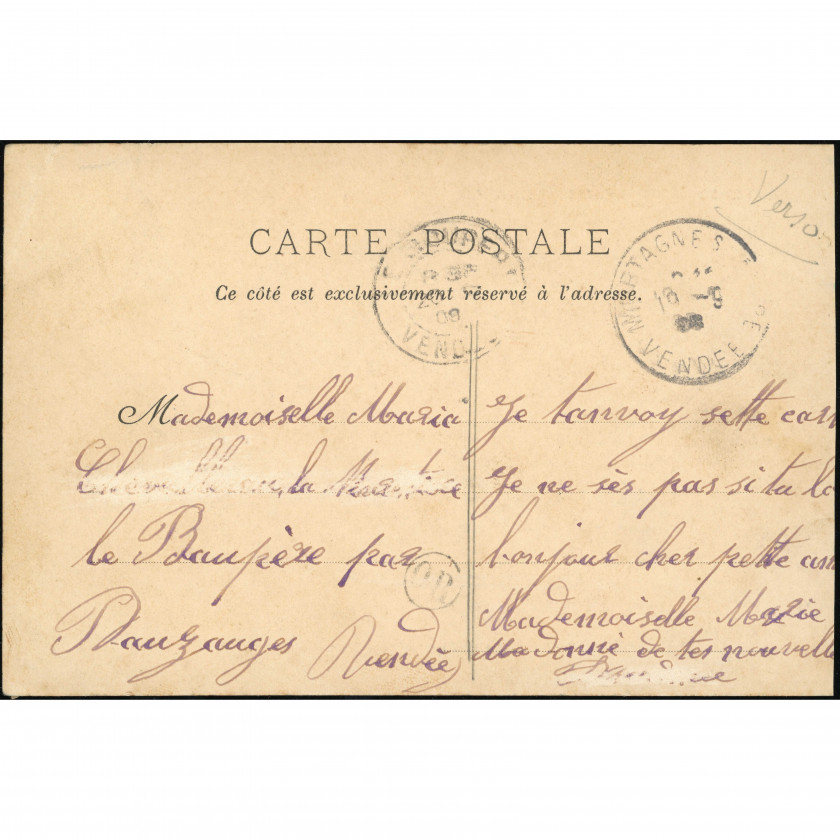 Verso
CARTE POSTALE
Ce côté est exclusivement réservé à l'adresse.
VENDÉE
MORTAGNE S
18 -9
VENDEE
Mademoiselle Maria
la
le Baupère par
Bauzauges Vendée
Je tanvoy sette car
Je ne sès pas si tu la
bonjour cher petite am
Mademoiselle Marie
Madonné de tes nouvelle